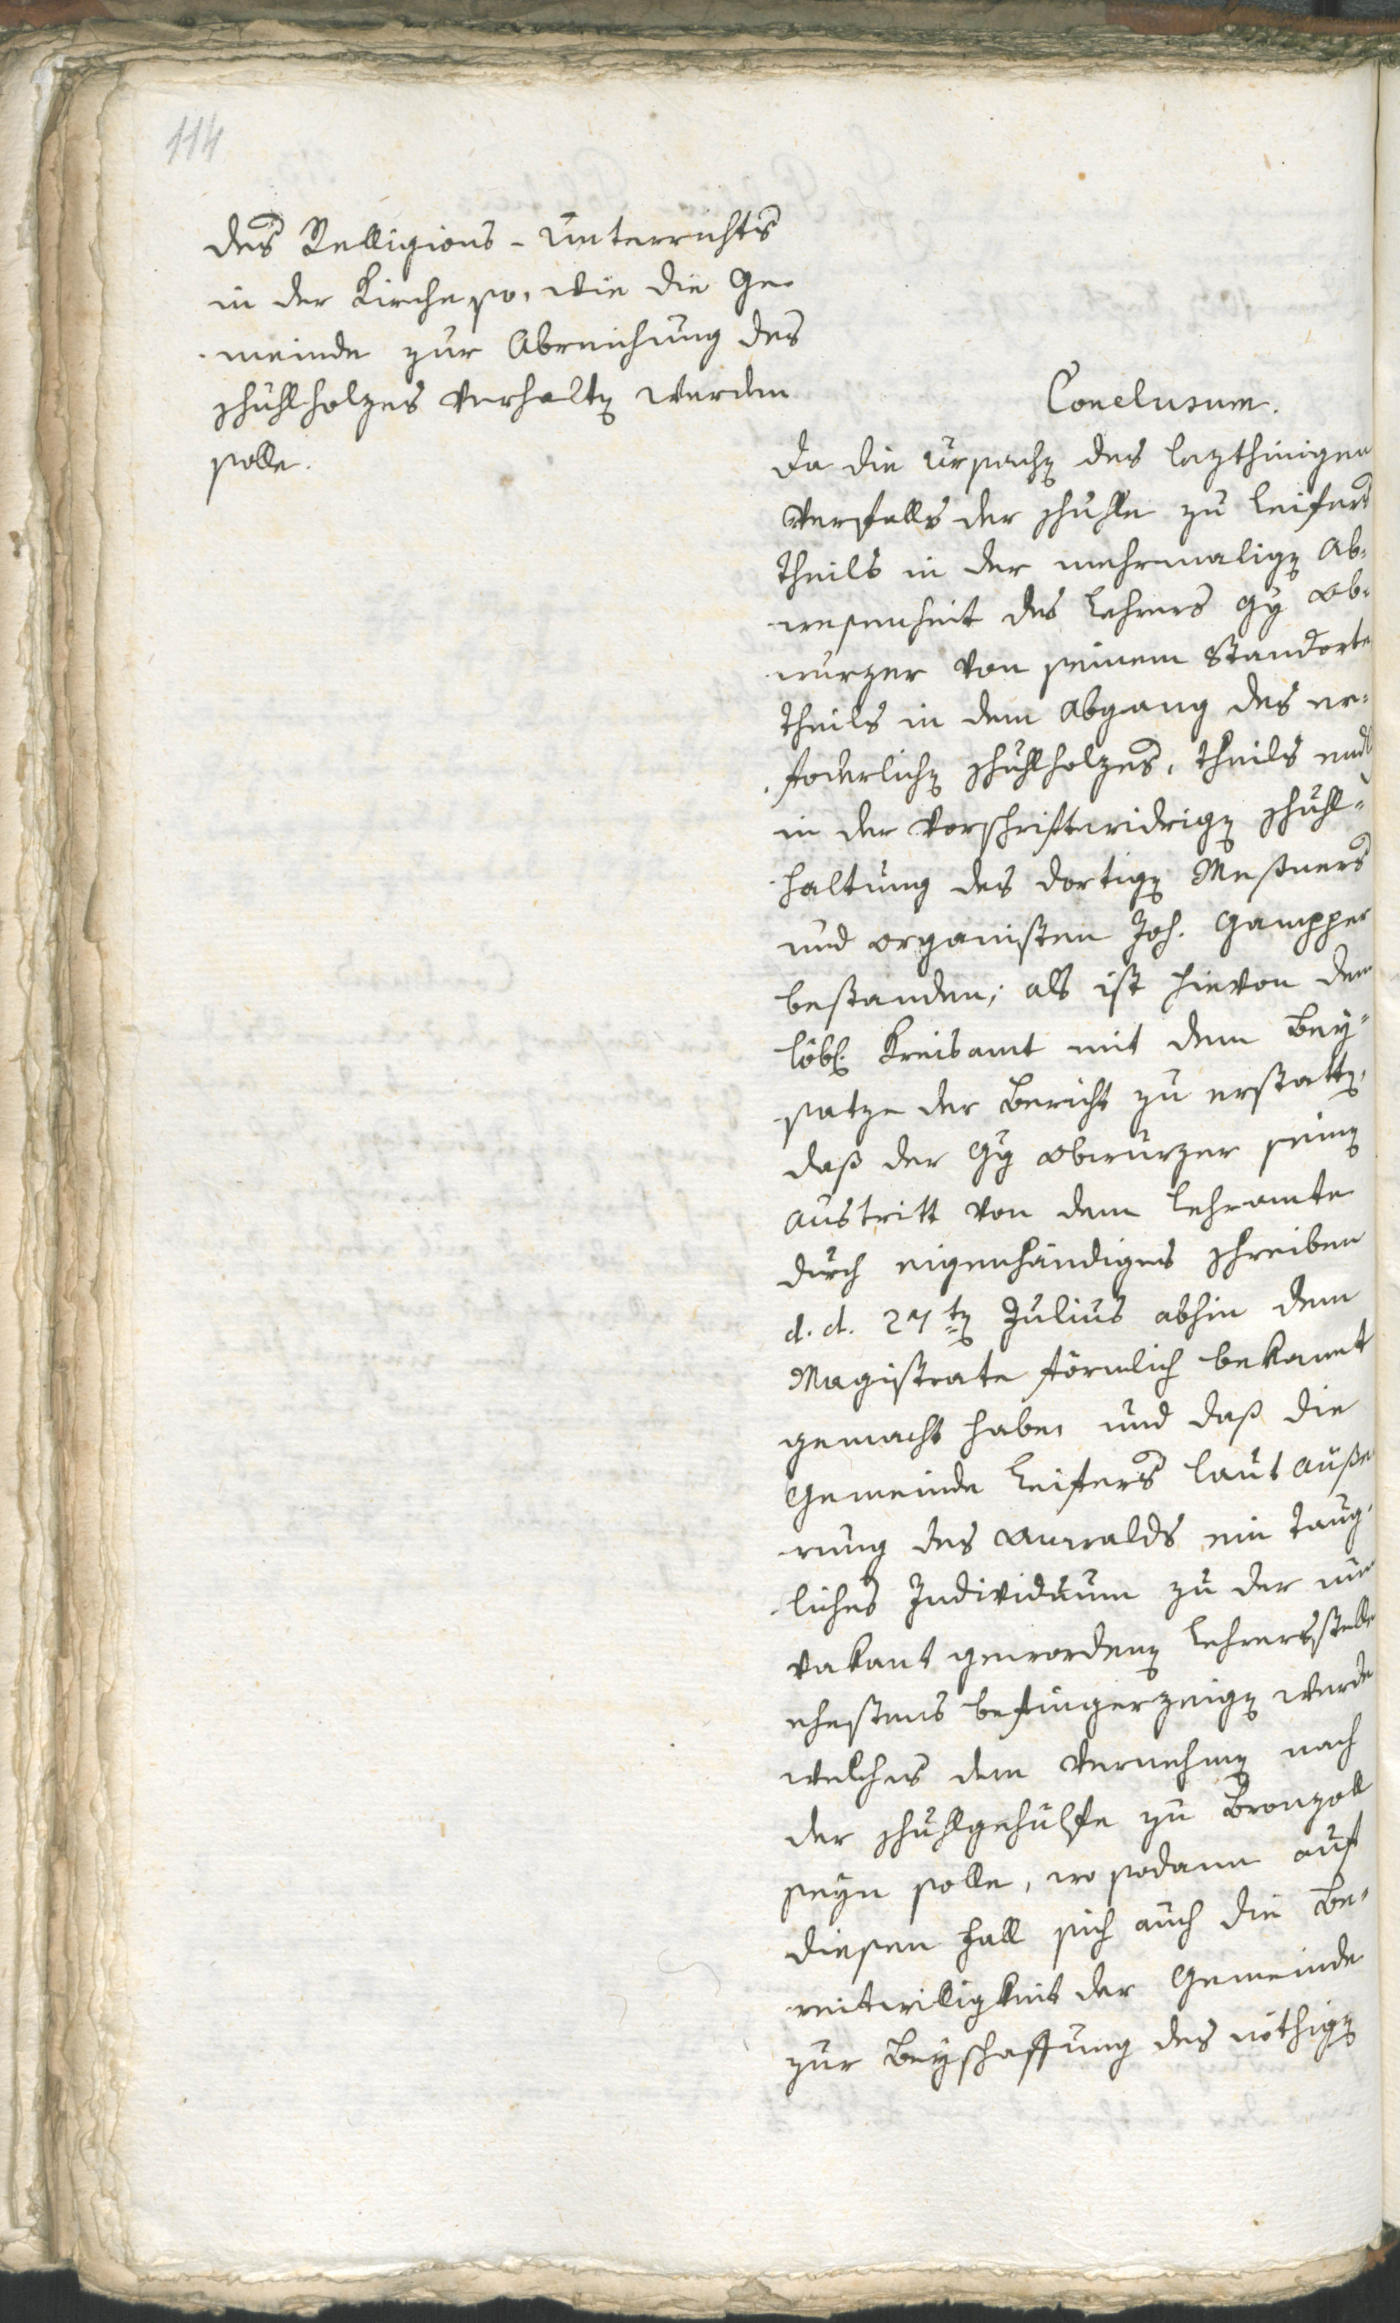 114
des Religions-Unterrichts
in der Kirche so, wie die Ge-
meinde zur Abreichung des
Schuhlholzes verhalten werden
solle.
Conclusum.
Da die Ursachen des lezthinigen
Verfalls der Schuhle zu Leifers
theils in der mehrmaligen Ab-
wesenheit des Lehrers Gg Ob-
wurzer von seinem Standorte
theils in dem Abgang des er-
foderlichen Schuhlholzes, theils endl
in der Vorschriftwidrigen Schuhl-
haltung des dortigen Meßners
und Organisten Joh. Gampper
bestanden; als ist hievon dem
löbl. Kreisamt mit dem Bey-
satze der Bericht zu erstatten,
daß der Gg Obwurzer seinen
Austritt von dem Lehramte
durch eigenhändiges Schreiben
d. d. 27ten Julius abhin dem
Magistrate förmlich bekannt
gemacht habe, und daß die
Gemeinde Leifers laut Äuße
rung des Anwalds ein taug-
liches Individuum zu der nun
vakant gewordenen Lehrersstelle
ehestens befingerzeigen werde
welches dem Vernehmen nach
der Schuhlgehülfe zu Bronzoll
seyn solle, wo sodann auf
diesen Fall sich auch die Be-
reitwilligkeit der Gemeinde
zur Beyschaffung des nöthigen